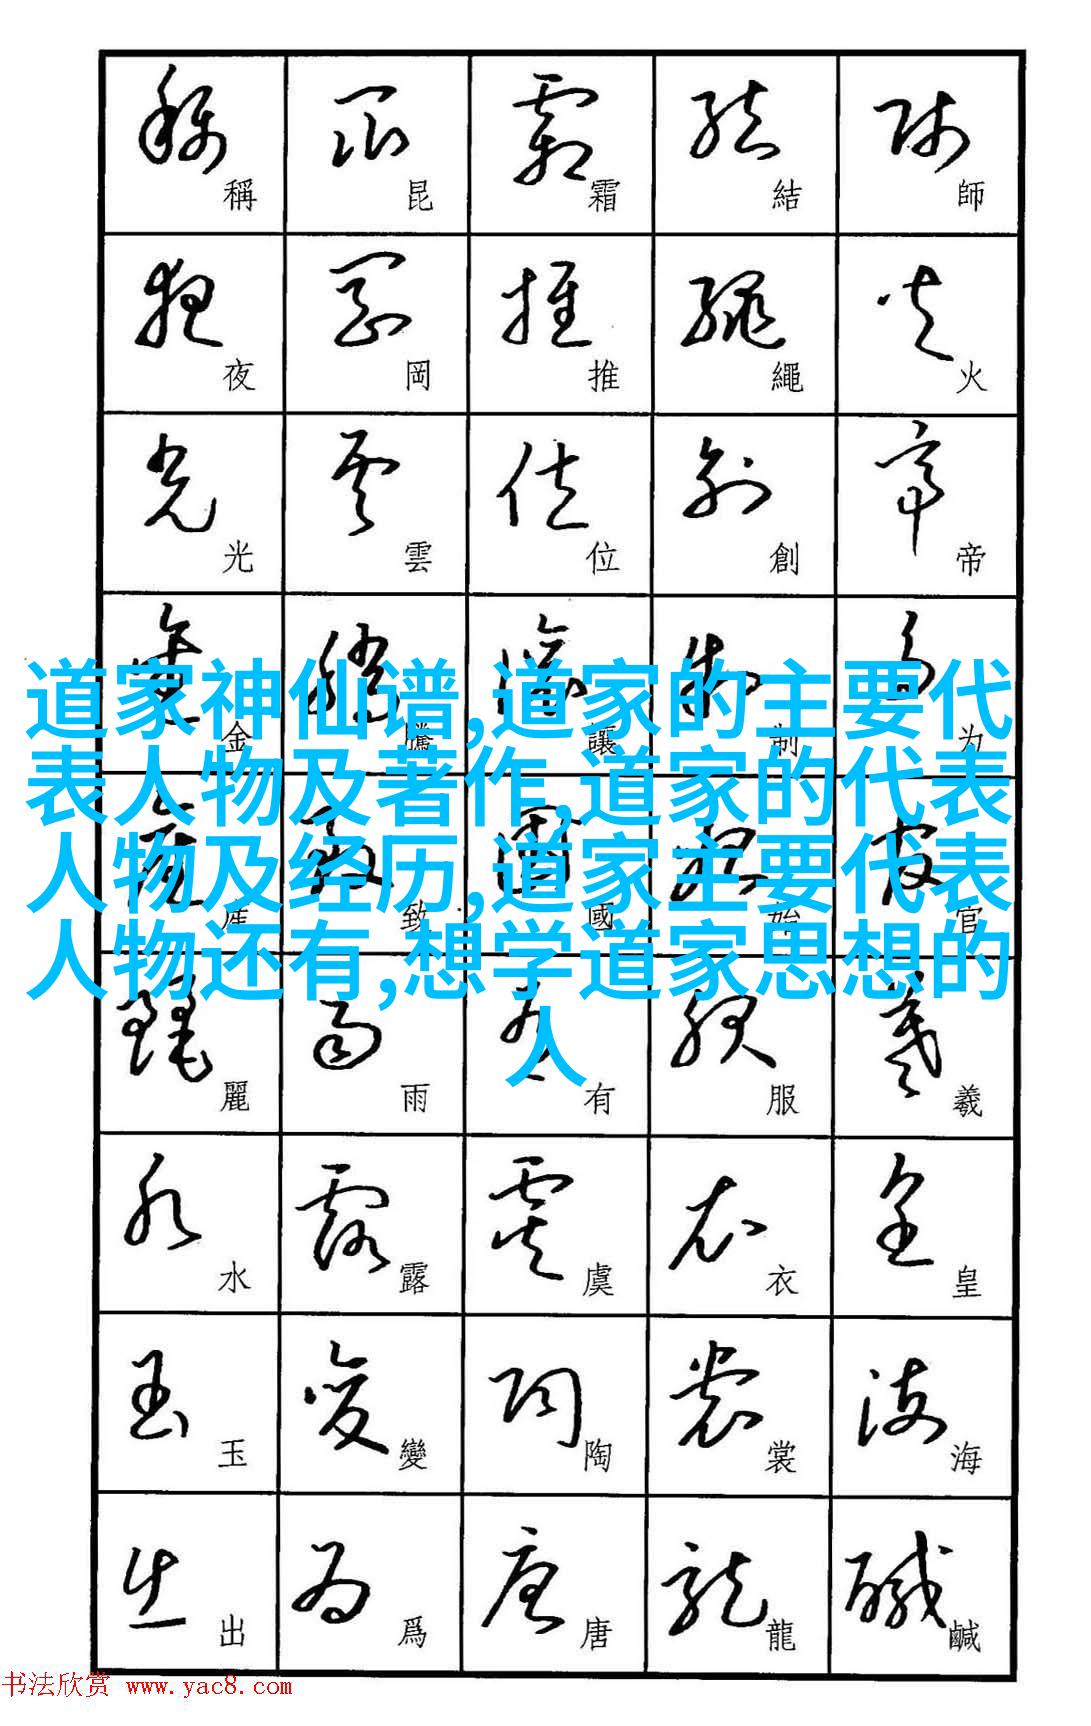 稱 昆 霜 結 師
夜 岡 推 繩 火
光 雲 位 創 帝
金 騰 讓 制 为
道家神仙谱,道家的主要代
表人物及著作,道家的代表
人物及经历,道家主要代表
人物还有,想学道家思想的
人
致 國 始 官
麗 雨 有 服 羲
水 露 虞 衣 皇
玉 變 陶 裳 海
出 爲 唐 龍 鹹
书法欣赏 www.yac8.com